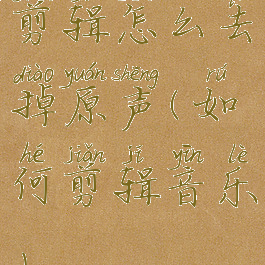 剪辑怎么去
diào yuán shēng rú
掉原声(如
hé jiǎn jí yīn lè
何剪辑音乐
)